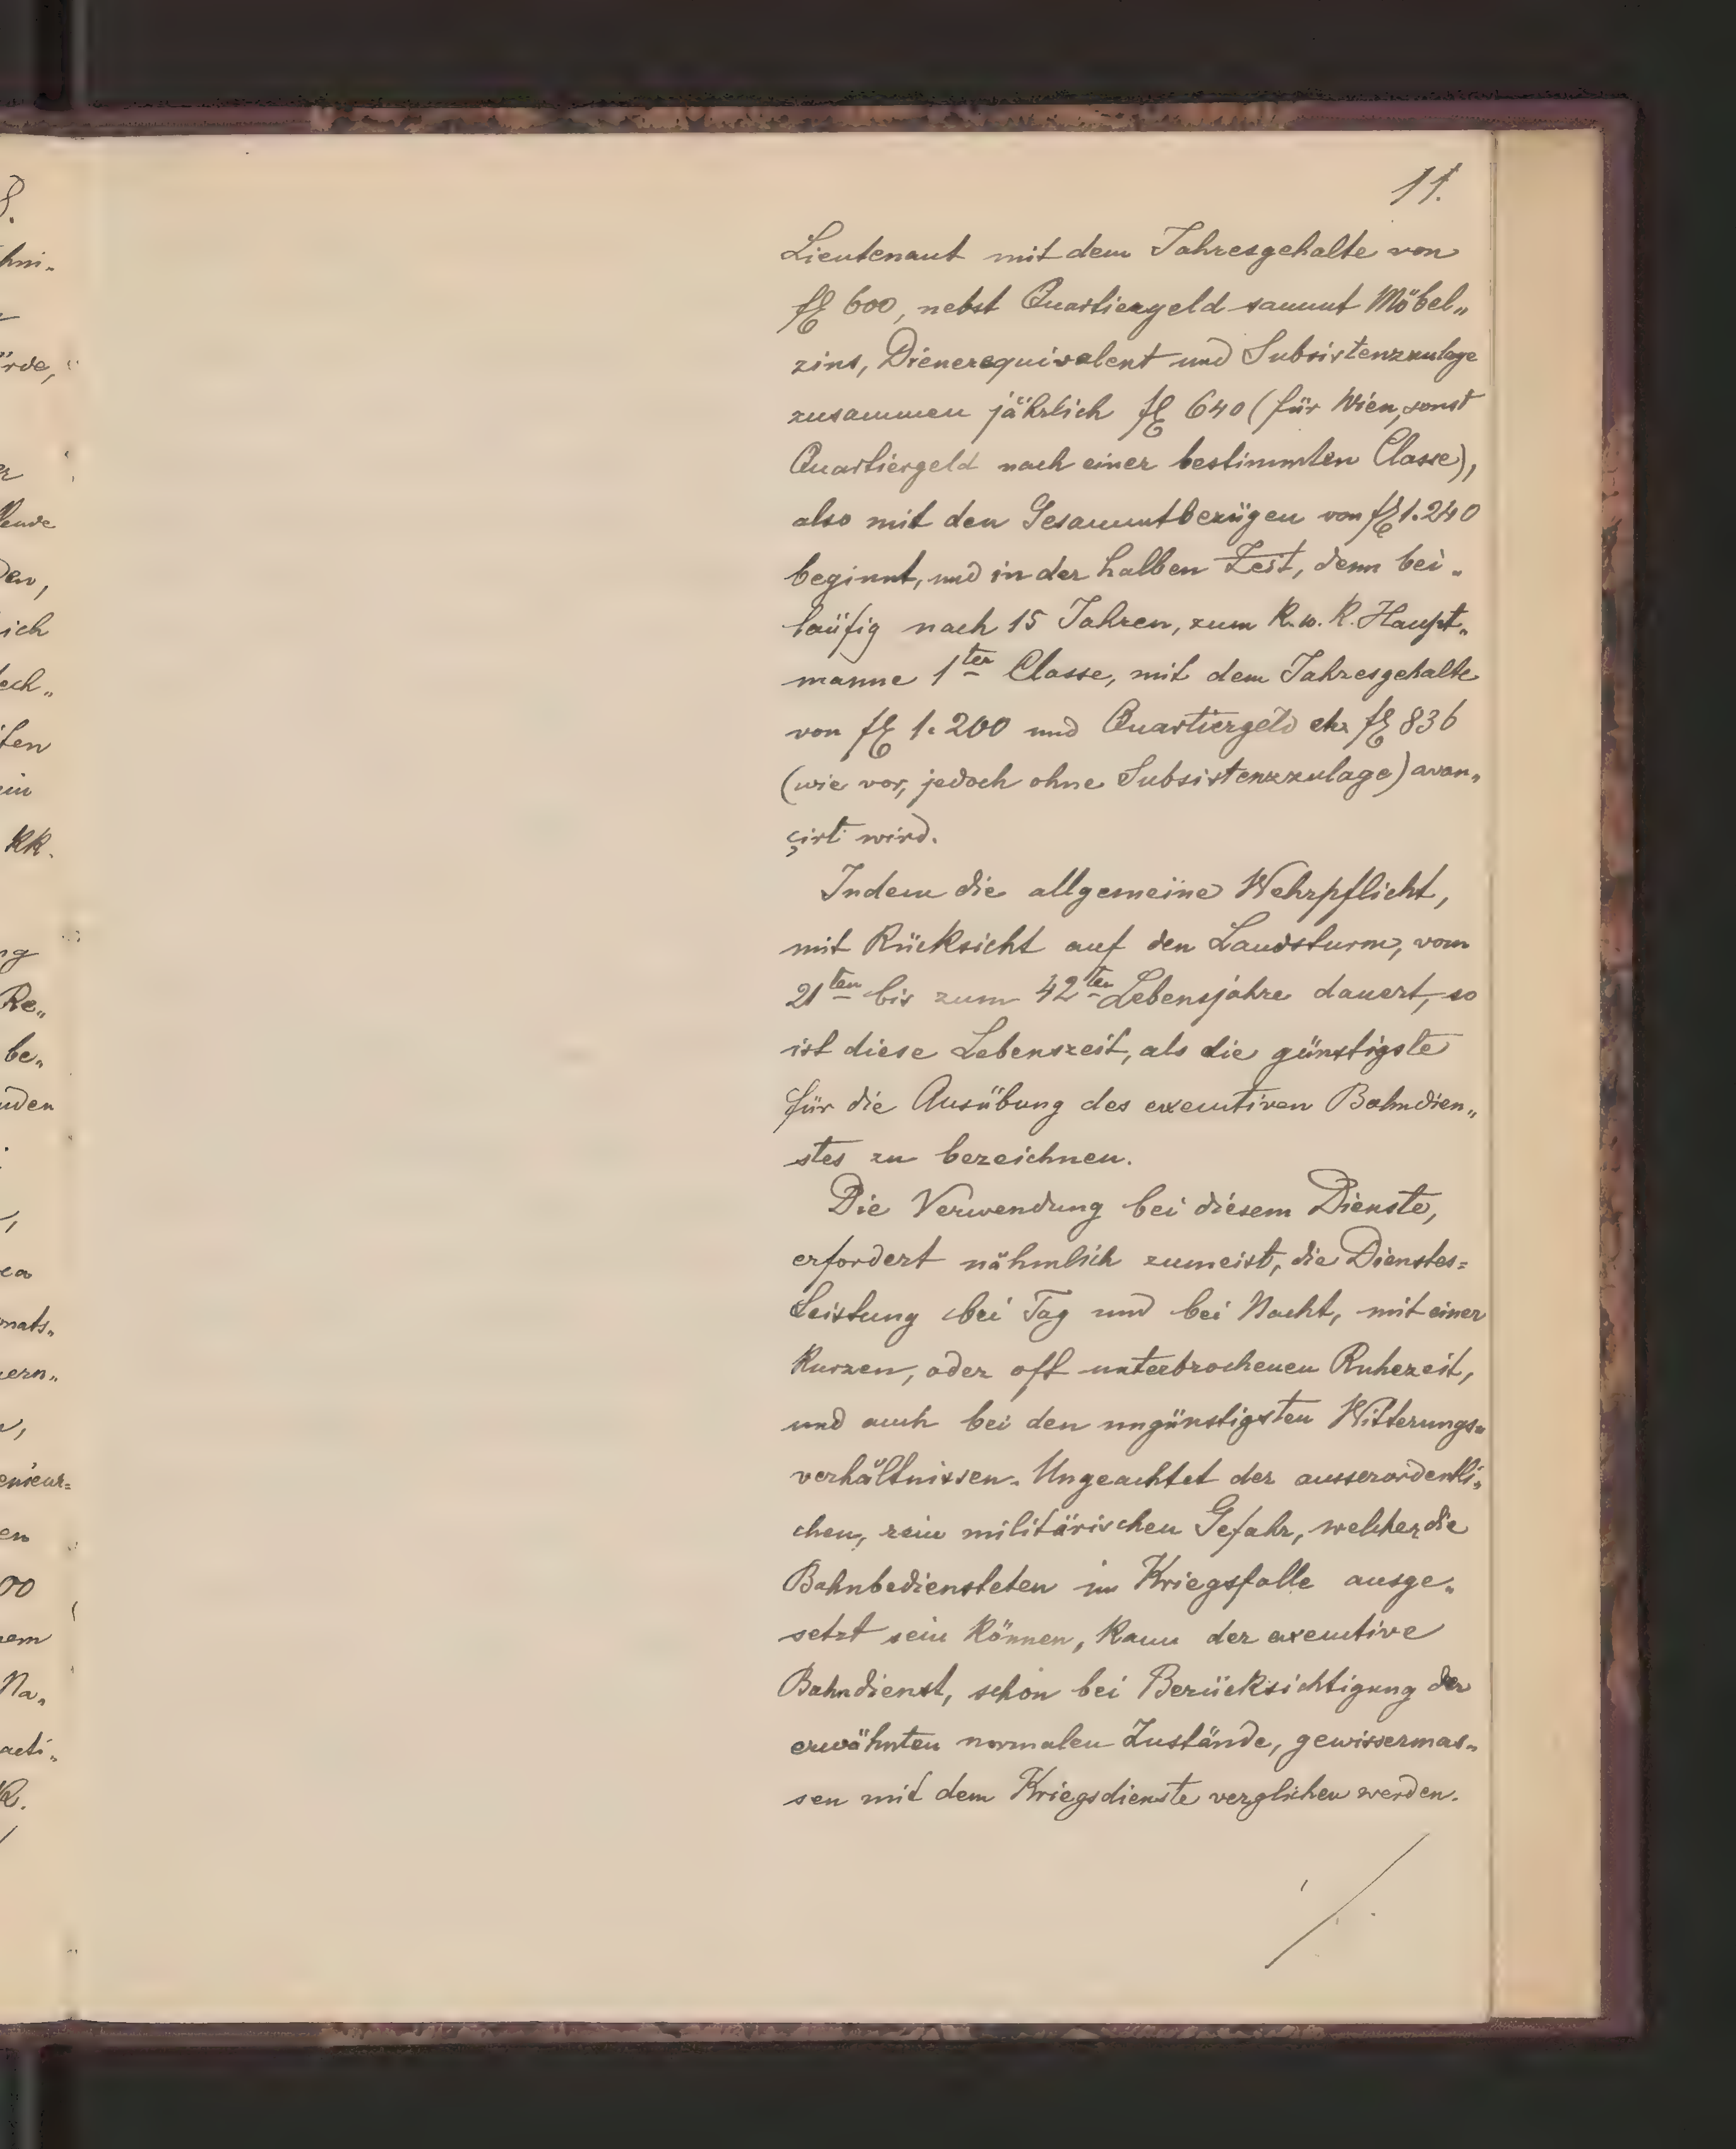 11.
Lieutenant mit dem Jahresgehalte von
fl 600, nebst Quartiergeld sammt Möbel„
zins, Dienerequivalent und Subsistenzzulage
zusammen jährlich fl 640 (für Wien, sonst
Quartiergeld nach einer bestimmten Classe),
also mit den Gesammtbezügen von fl 1.240
beginnt, und in der halben Zeit, denn bei„
läufig nach 15 Jahren, zum K. u. K. Haupt„
manne 1ter Classe, mit dem Jahresgehalte
von fl 1.200 und Quartiergeld etc fl 836
(wie vor, jedoch ohne Subsistenzzulage) avan„
çirt wird.
Indem die allgemeine Wehrpflicht,
mit Rücksicht auf den Landsturm, vom
21ten bis zum 42ten Lebensjahre dauert, so
ist diese Lebenszeit, als die günstigste
für die Ausübung des executiven Bahndien„
stes zu bezeichnen.
Die Verwendung bei diesem Dienste,
erfordert nähmlich zumeist, die Dienstes=
Leistung bei Tag und bei Nacht, mit einer
kurzen, oder oft unterbrochenen Ruhezeit,
und auch bei den ungünstigsten Witterungs„
verhältnissen. Ungeachtet der ausserordentli„
chen, rein militärischen Gefahr, welcher die
Bahnbediensteten im Kriegsfalle ausge„
setzt sein können, kann der executive
Bahndienst, schon bei Berücksichtigung der
erwähnten normalen Zustände, gewissermas„
sen mit dem Kriegsdienste verglichen werden.